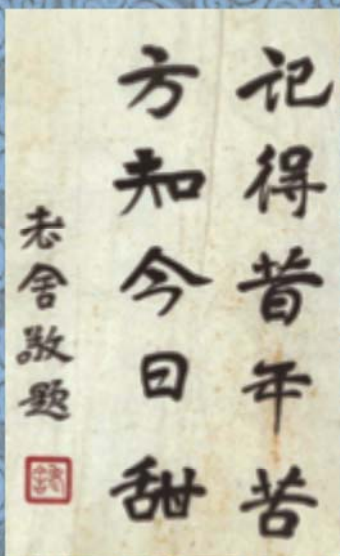 记得昔年苦
方知今日甜
老舍敬题